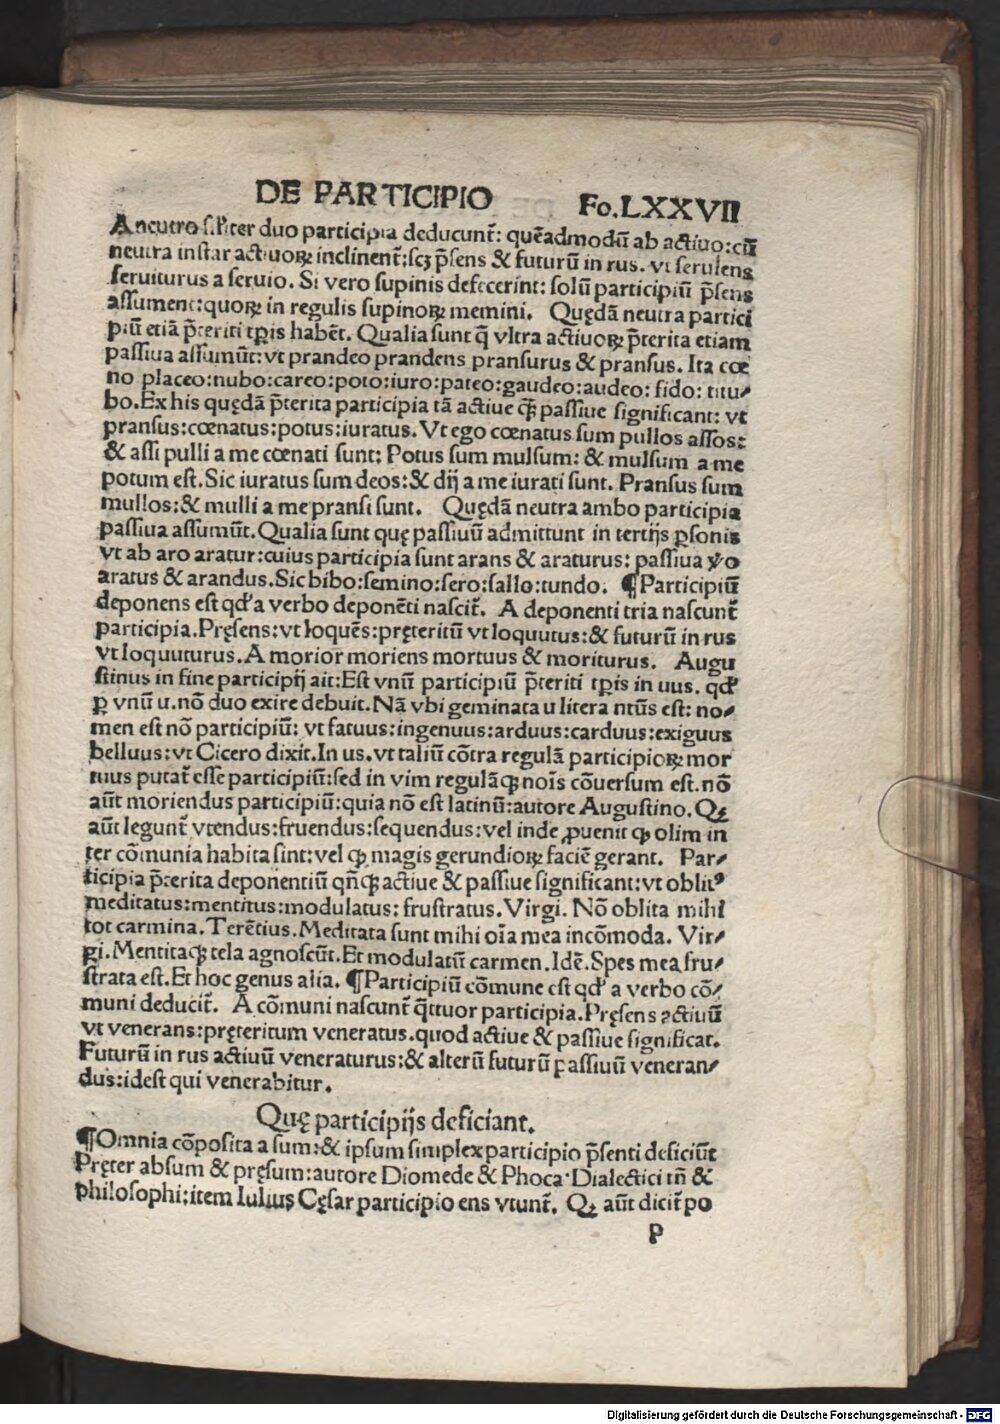 DE PARTICIPIO Fo.LXXVII
A neutro ſiľiter duo participia deducunť: quēadmodū ab actiuo:cū
neutra inſtar actiuoꝝ inclinenť:ſcȝ p̄ſens & futurū in rus. vt ſeruiens
ſeruiturus a ſeruio. Si vero ſupinis defecerint: ſolū participiū p̄ſens
aſſument:quoꝝ in regulis ſupinoꝝ memini. Quędā neutra partici
piū etiā p̄teriti tꝑis habēt. Qualia ſunt q̄ vltra actiuoꝝ p̄terita etiam
paſſiua aſſumūt:vt prandeo prandens pranſurus & pranſus. Ita cœ
no placeo:nubo:careo:poto:iuro:pateo:gaudeo:audeo: fido: titu⸗
bo. Ex his quędā p̄terita participia tā actiue ꝙ̄ paſſiue ſignificant: vt
pranſus:cœnatus:potus:iuratus. Vt ego cœnatus ſum pullos aſſos:
& aſſi pulli a me cœnati ſunt: Potus ſum mulſum: & mulſum a me
potum eſt. Sic iuratus ſum deos:& dij a me iurati ſunt. Pranſus ſum
mullos:& mulli a me pranſi ſunt. Quędā neutra ambo participia
paſſiua aſſumūt. Qualia ſunt quę paſſiuū admittunt in tertijs ꝑſonis
vt ab aro aratur:cuius participia ſunt arans & araturus: paſſiua ꝟo
aratus & arandus. Sic bibo:ſemino:ſero:ſallo:tundo. ¶Participiū
deponens eſt qď a verbo deponēti naſciť. A deponenti tria naſcunť
participia. Pręſens:vt loquēs:pręteritū vt loquutus:& futurū in rus
vt loquuturus. A morior moriens mortuus & moriturus. Augu
ſtinus in fine participij ait:Eſt vnū participiū p̄teriti tꝑis in uus. qď
ꝑ vnū u. nō duo exire debuit. Nā vbi geminata u litera ntūs eſt: no⸗
men eſt nō participiū: vt fatuus:ingenuus:arduus:carduus:exiguus
belluus:vt Cicero dixit. In us. vt taliū cōtra regulā participioꝝ mor
tuus putať eſſe participiū:ſed in vim regulāꝙ noīs cōuerſum eſt. nō
aūt moriendus participiū:quia nō eſt latinū:autore Auguſtino. Qꝫ
aūt legunť vtendus:fruendus:ſequendus:vel inde ꝓuenit ꝙ olim in
ter cōmunia habita ſint:vel ꝙ magis gerundioꝝ faciē gerant. Par⸗
ticipia p̄terita deponentiū qn̄ꝙ actiue & paſſiue ſignificant:vt oblitꝰ
meditatus:mentitus:modulatus: fruſtratus. Virgi. Nō oblita mihi
tot carmina. Terētius. Meditata ſunt mihi oīa mea incōmoda. Vir⸗
gi. Mentitaꝙ tela agnoſcūt. Et modulatū carmen. Idē. Spes mea fru⸗
ſtrata eſt. Et hoc genus alia. ¶Participiū cōmune eſt qď a verbo cō⸗
muni deduciť. A cōmuni naſcunť q̄ttuor participia. Pręſens actiuū
vt venerans:pręteritum veneratus. quod actiue & paſſiue ſignificat.
Futurū in rus actiuū veneraturus:& alterū futurū paſſiuū veneran⸗
dus:ideſt qui venerabitur.
Quę participijs deficiant.
¶Omnia cōpoſita a ſum:& ipſum ſimplex participio p̄ſenti deficiūt
Pręter abſum & pręſum:autore Diomede & Phoca· Dialectici tn̄ &
philoſophi:item Iulius Cęſar participio ens vtunť. Qꝫ aūt diciť po
P
Digitalisierung gefördert durch die Deutsche Forschungsgemeinschaft - DFG